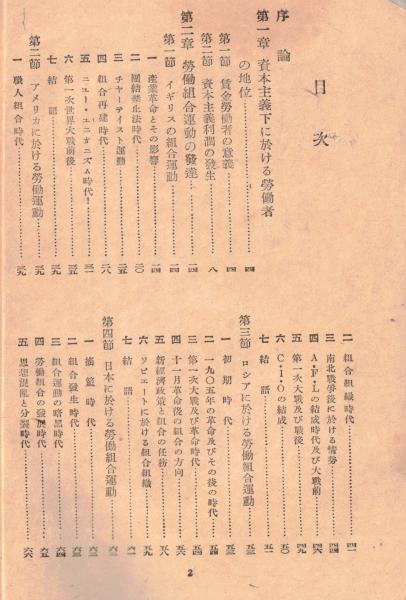 目次
序論
第一章 資本主義下に於ける勞働者
の地位……四
第一節 賃金勞働者の意義……四
第二節 資本主義利潤の發生……八
第二章 勞働組合運動の發達……一四
第一節 イギリスの組合運動……一四
一 產業革命とその影響……一四
二 團結禁止法時代……二〇
三 チャーティスト運動……二五
四 組合再建時代……二八
五 ニュー・ユニオニズム時代……三一
六 第一次世界大戰前後……三五
七 結語……三九
第二節 アメリカに於ける勞働運動……三九
一 職人組合時代……三九
二 組合組織時代……四一
三 南北戰爭後に於ける情勢……四四
四 A・F・Lの結成時代及び大戰前……四六
五 第一次大戰及び戰後……四九
六 C・I・Oの結成……五〇
七 結語……五二
第三節 ロシアに於ける勞働組合運動……五三
一 初期時代……五三
二 一九〇五年の革命及びその後の時代……五四
三 第一次大戰及び革命時代……五四
四 十一月革命後の組合の方向……五六
五 新經濟政策と組合の任務……五八
六 ソビエートに於ける組合組織……五九
七 結語……六一
第四節 日本に於ける勞働組合運動……六三
一 搖籃時代……六三
二 組合發生時代……六三
三 組合運動の暗黑時代……六四
四 勞働組合の發展時代……六五
五 思想混亂と分裂時代……六六
2